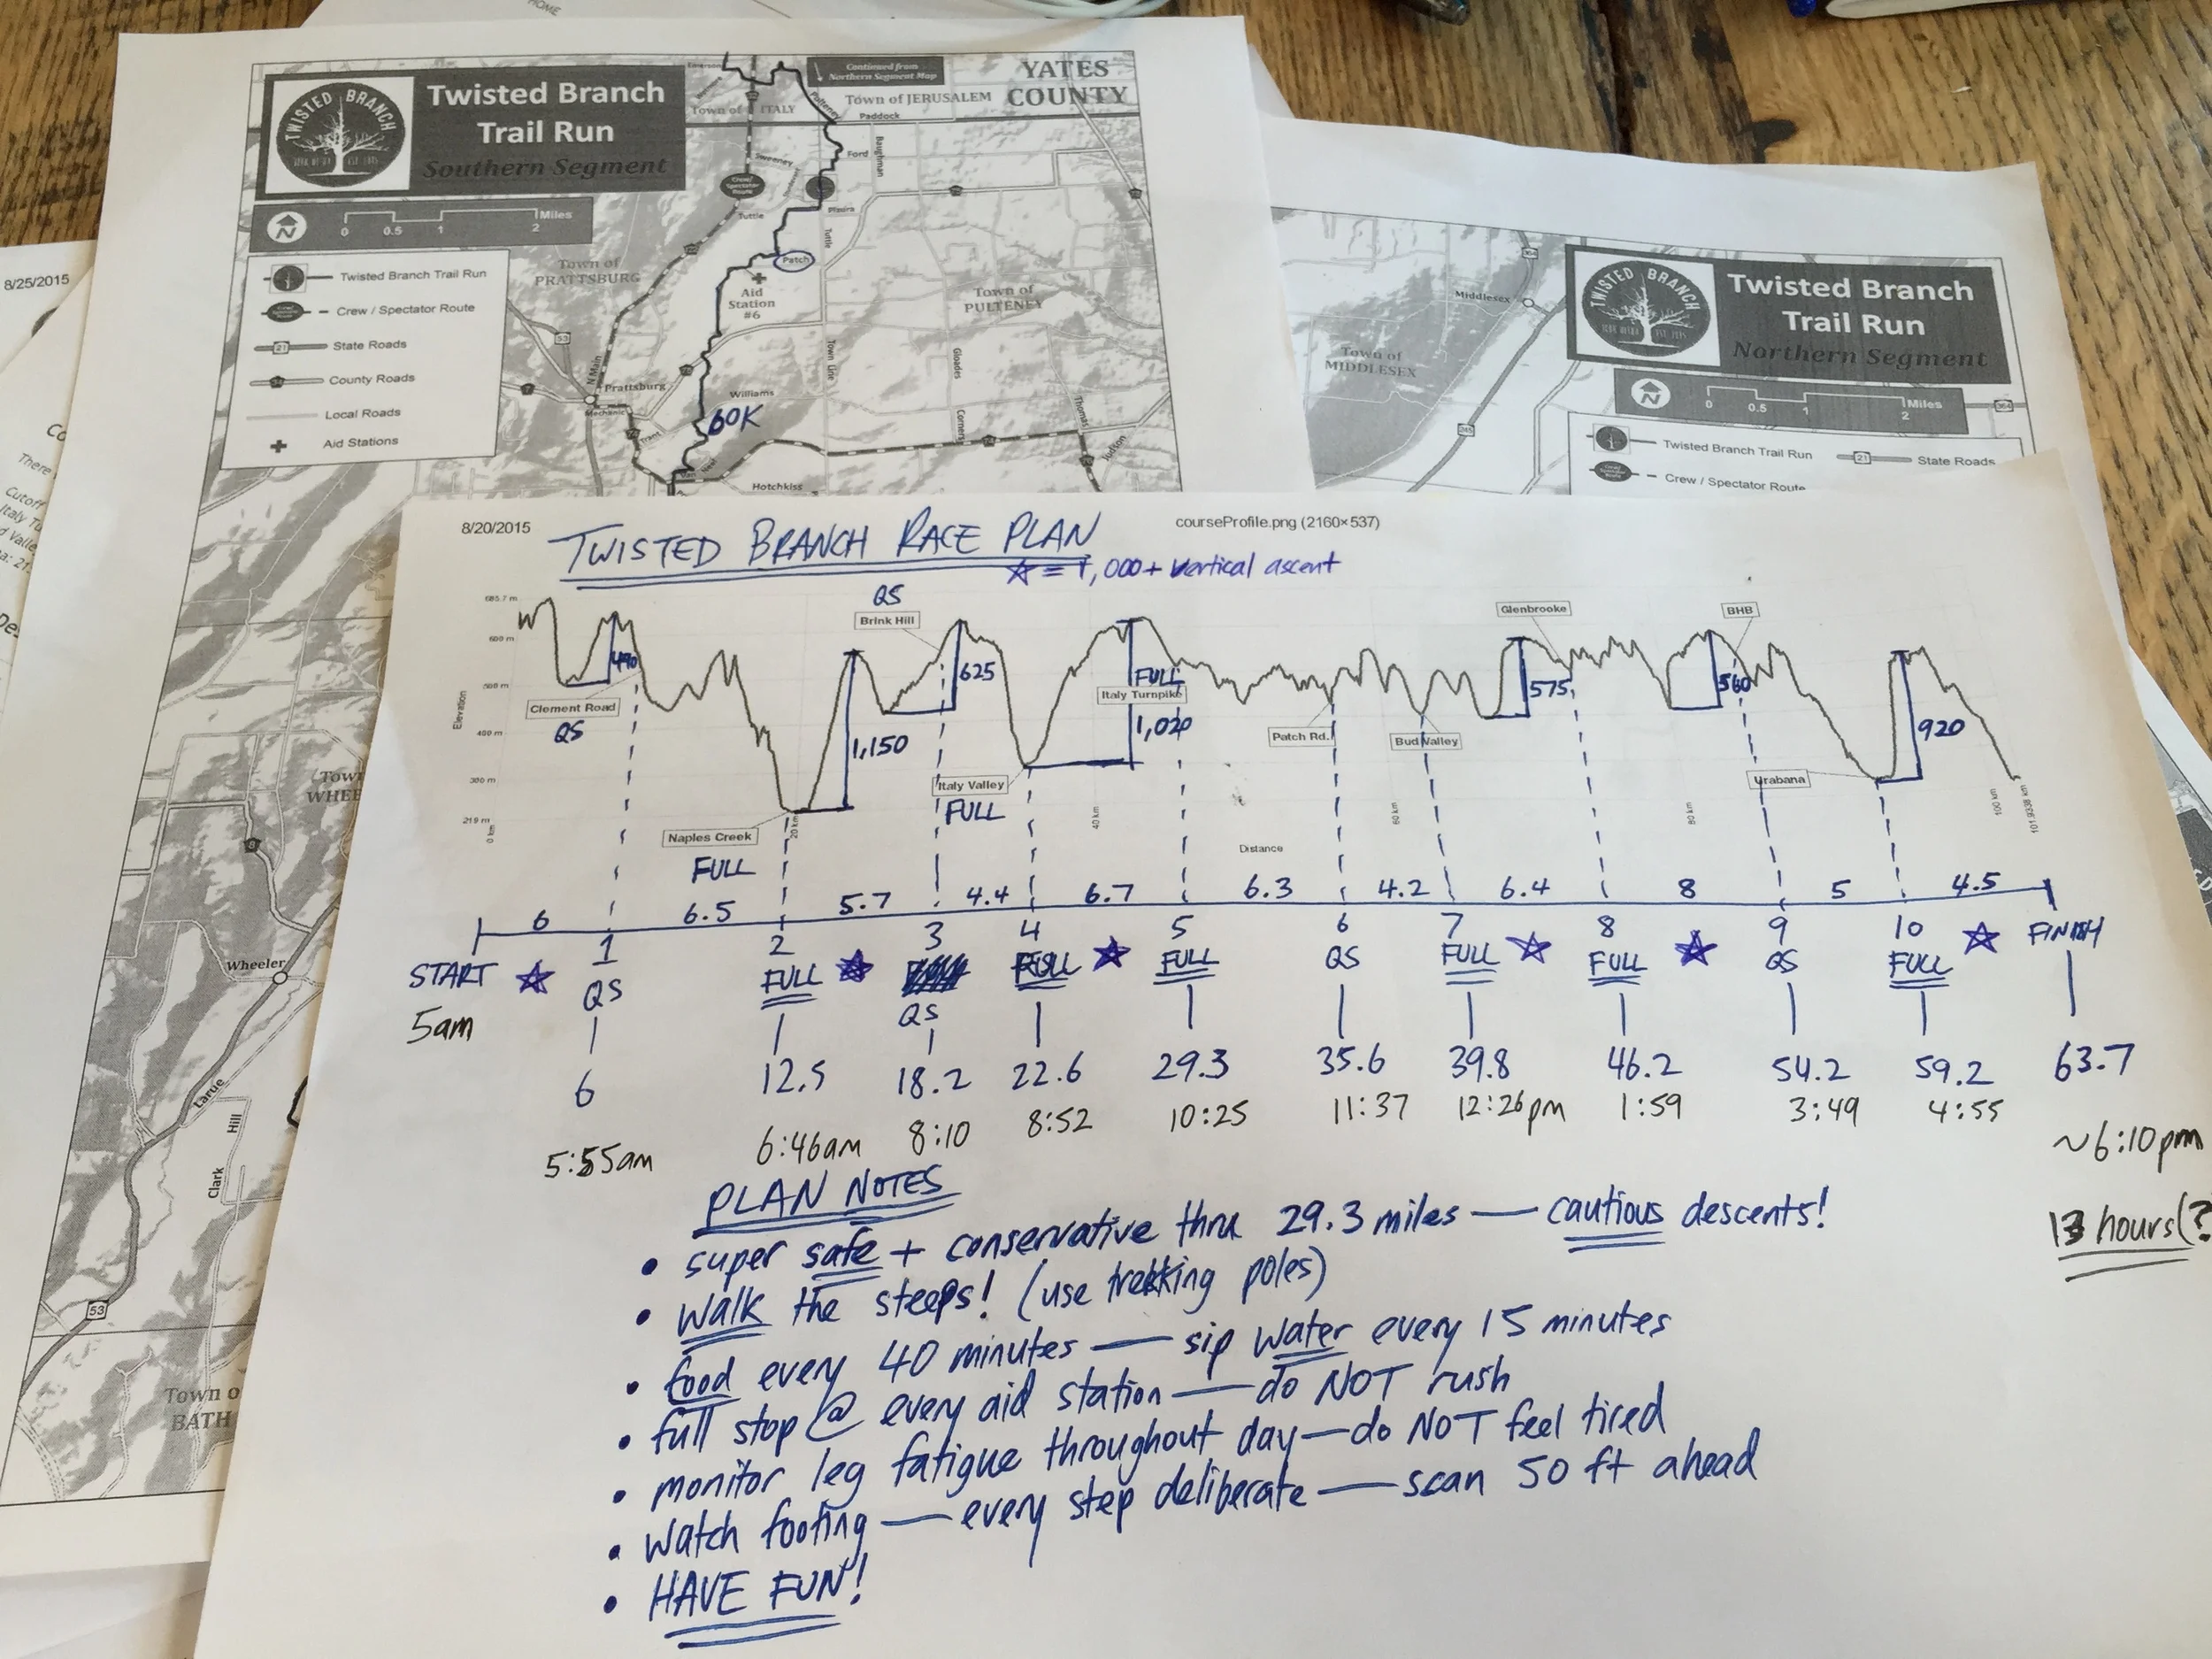 HOME
8/25/2015
There
Cutoff
Twisted Branch
Trail Run
Southern Segment
TWISTED BRANCH
Miles
0 0.5 1 2
N
Twisted Branch Trail Run
Crew / Spectator Route
State Roads
County Roads
Local Roads
Aid Stations
21
Continued from
Northern Segment Map
YATES
COUNTY
Town of ITALY
Town of JERUSALEM
Paddock
Ford
Baughman
Sweeney
Crew/
Spectator
Route
Tuttle
Tuttle
Patch
Aid
Station
#6
Town of
PRATTSBURG
Town of
PULTENEY
53
N Main
Prattsburg
Mechanic
Williams
Town Line
Gloades
Corners
Thomas
Judson
60K
Hotchkiss
Wheeler
Larue
Hill
Clark
53
BATH
Middlesex
364
245
Town of
MIDDLESEX
Twisted Branch
Trail Run
Northern Segment
TWISTED BRANCH
Miles
0 0.5 1 2
N
364
Twisted Branch Trail Run
21
State Roads
Crew / Spectator Route
8/20/2015
courseProfile.png (2160×537)
TWISTED BRANCH RACE PLAN
☆ = 1,000+ vertical ascent
QS
685.7 m
600 m
500 m
400 m
300 m
219 m
Elevation
Brink Hill
Glenbrooke
BHB
490
625
FULL
Italy Turnpike
575
560
Clement Road
QS
1,150
1,020
Patch Rd.
Bud Valley
920
Italy Valley
FULL
Urabana
Naples Creek
FULL
0 km
20 km
40 km
60 km
80 km
100 km
101.938 km
Distance
6 6.5 5.7 4.4 6.7 6.3 4.2 6.4 8 5 4.5
1 2 3 4 5 6 7 8 9 10
START ☆ QS FULL ☆ QS FULL ☆ FULL QS FULL ☆ FULL ☆ QS FULL ☆ FINISH
6 12.5 18.2 22.6 29.3 35.6 39.8 46.2 54.2 59.2 63.7
5am 5:55am 6:46am 8:10 8:52 10:25 11:37 12:26pm 1:59 3:49 4:55 ~6:10pm
13 hours(?
PLAN NOTES
• super safe + conservative thru 29.3 miles — cautious descents!
• walk the steeps! (use trekking poles)
• food every 40 minutes — sip water every 15 minutes
• full stop @ every aid station — do NOT rush
• monitor leg fatigue throughout day — do NOT feel tired
• watch footing — every step deliberate — scan 50 ft ahead
• HAVE FUN!